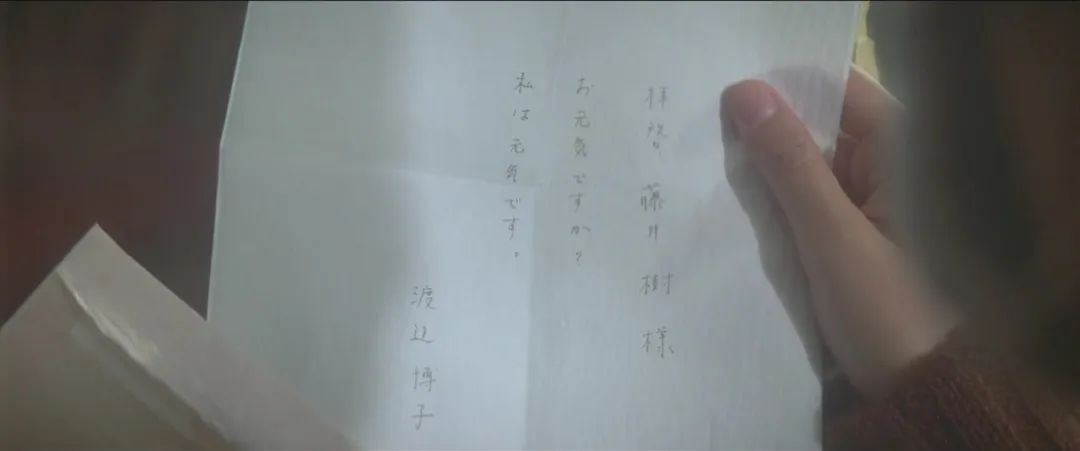 拝啓 藤井 樹 様
お元気ですか?
私は元気です。
渡辺 博子